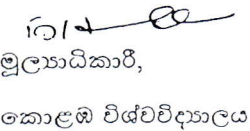 මූල්‍යාධිකාරී,
කොළඹ විශ්වවිද්‍යාලය